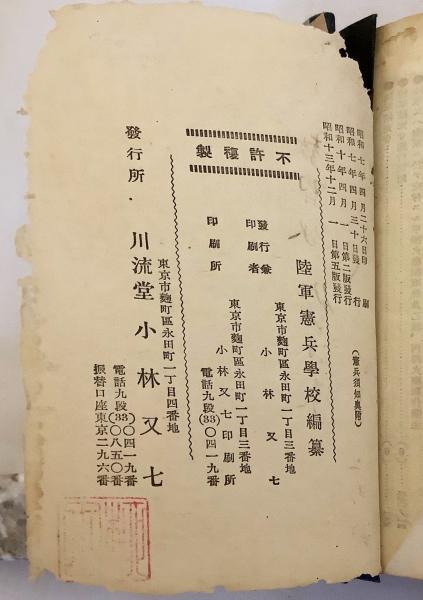 昭和七年四月二十六日印刷
昭和七年四月三十日發行
昭和十年四月一日第二版發行
昭和十三年十二月一日第五版發行
(憲兵須知奧附)
陸軍憲兵學校編纂
不許複製
東京市麴町區永田町一丁目三番地
發行兼印刷者 小林又七
東京市麴町區永田町一丁目三番地
印刷所 小林又七印刷所
電話九段(33)〇四一九番
東京市麴町區永田町一丁目四番地
發行所 川流堂 小林又七
電話九段(33)〇四一九番
(33)〇八五〇番
振替口座東京二九六番